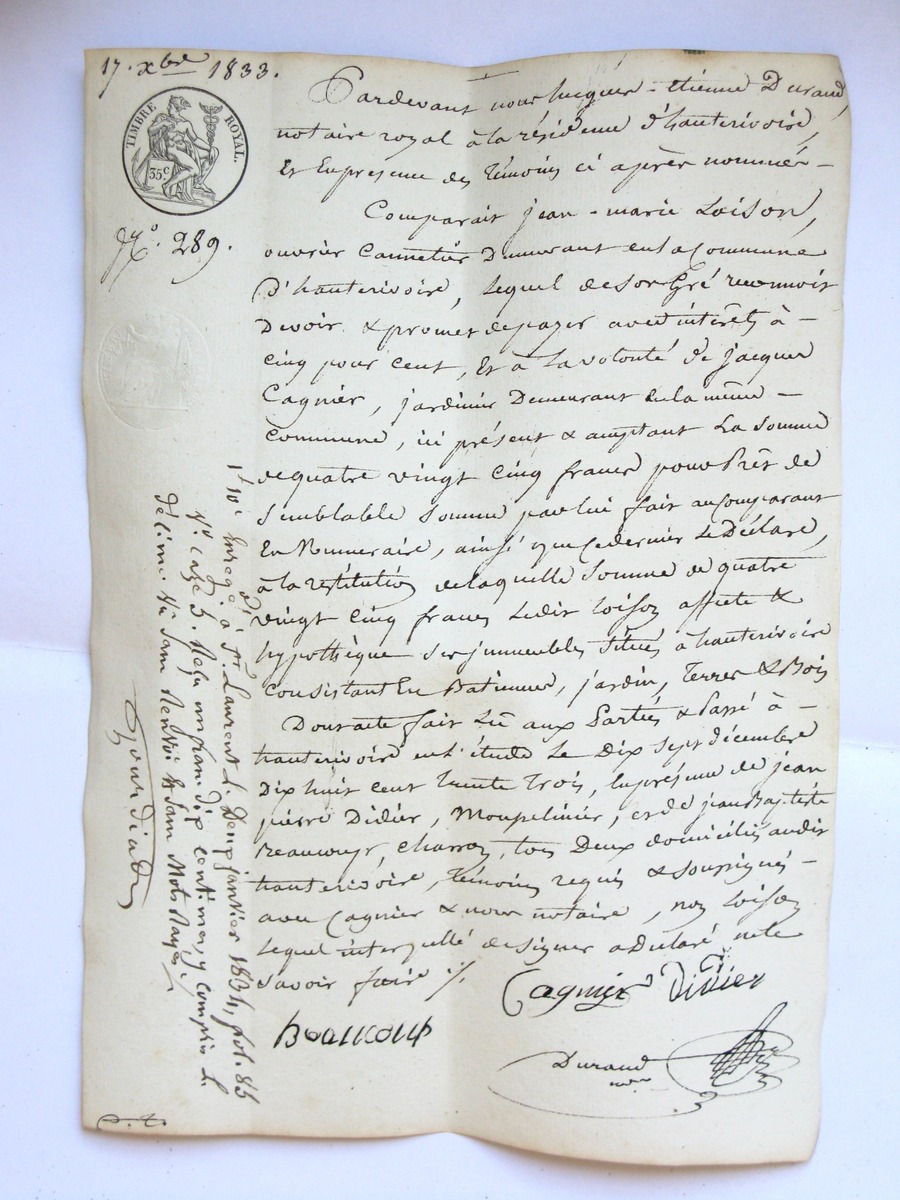 17. xbre 1833.
TIMBRE ROYAL.
35c
No. 289.
Pardevant nous Jacques-Etienne Durand,
notaire royal à la résidence d'hauterivoire,
Et En presence des Témoins ci après nommés -
Comparait jean-marie Loison,
ouvrier Demeurant en la Commune
D'hauterivoire, lequel de son Gré reconnoit
Devoir & promet de payer avec intérêts à -
Cinq pour cent, Et à La volonté de jacques
Cagnier, jardinier Demeurant en la même -
Commune, ici présent & acceptant La somme
de quatre vingt Cinq francs pour Prêt de
Semblable Somme par lui fait au Comparant
En Numeraire, ainsi que ce dernier Le Déclare,
à la restitution de laquelle Somme de quatre
vingt Cinq francs Ledit Loison affecte &
hypothèque ses immeubles Situés à hauterivoire
Consistant En Batimens, jardin, Terres & Bois
Dont acte fait Lû aux Parties & Passé à -
hauterivoire en l'étude Le Dix sept décembre
Dix huit cent trente trois, En présence de jean
pierre Didier, et de jean Baptiste
Beaucoup, Charron, tous Deux domiciliés audit
hauterivoire, témoins requis & soussignés -
avec Cagnier & nous notaire, non Loison
Lequel interpellé de signer a Déclaré ne le
Savoir faire ./.
Cagnier Didier
Beaucoup
Durand
nre
Enregé. à St. Laurent d. Deux janvier 1834, fol. 85
Vo. case 5. Reçu un franc dix centimes, y compris L.
décime. Sans Renvoi & sans Mots Rayés